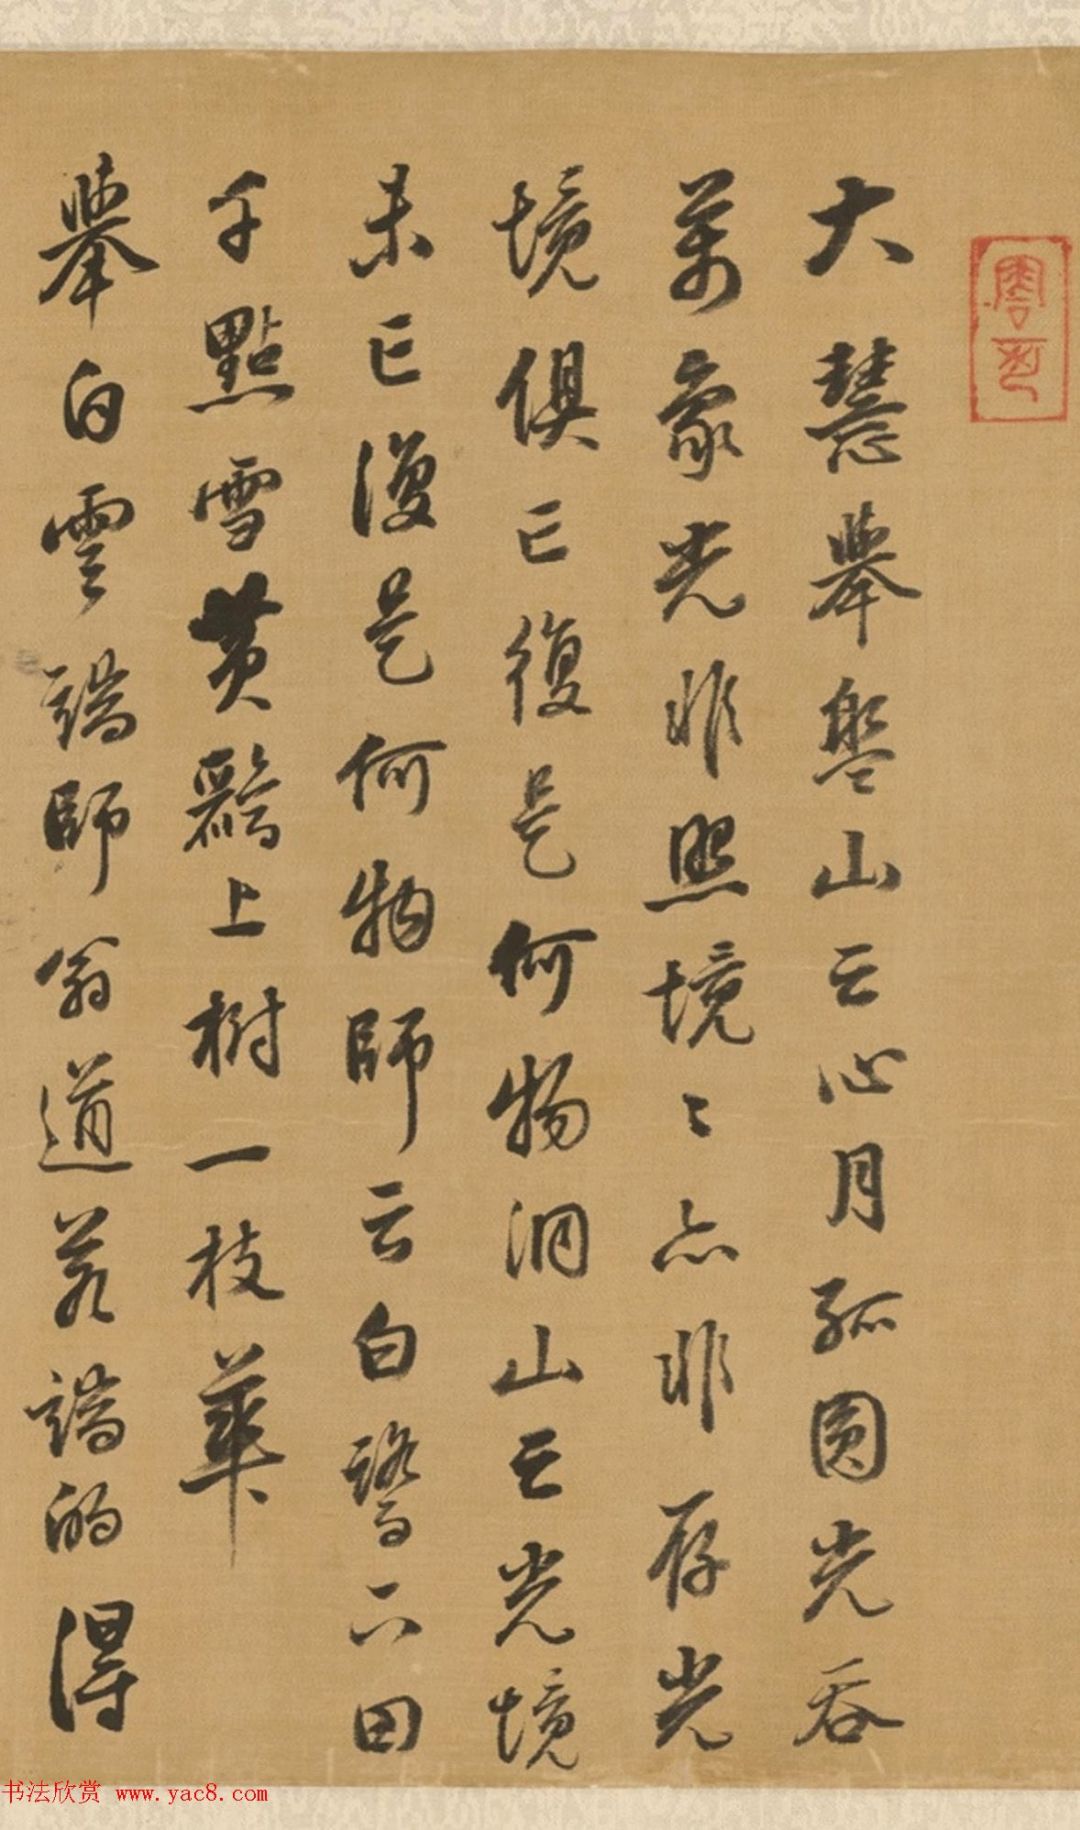 大慧舉盤山云心月孤圓光吞
萬象光非照境〻亦非存光
境俱亡復是何物洞山云光境
未亡復是何物師云白鷺下田
千點雪黃鸝上樹一枝華
舉白雲端師翁道若端的得
书法欣赏 www.yac8.com